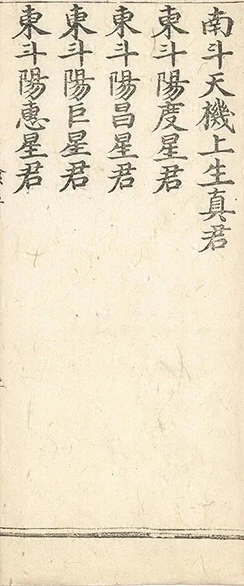 南斗天機上生真君
東斗陽度星君
東斗陽昌星君
東斗陽巨星君
東斗陽惠星君